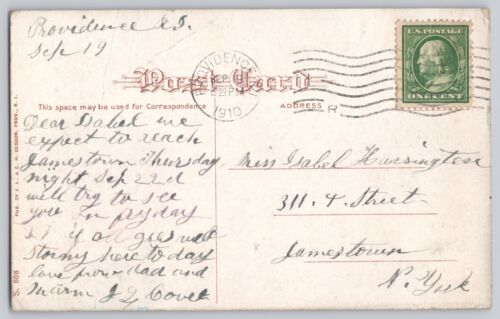 Providence R.I.
Sep 19
PROVIDENCE
SEP
PM
1910
R
U.S. POSTAGE
ONE CENT
Post Card
This space may be used for Correspondence
ADDRESS
Dear Isabel we
expect to reach
Jamestown Thursday
night Sep 22d
will try to see
you Friday
if all goes well
Stormy here to day
love from dad and
marm
Miss Isabel Harrington
311. 4. Street
Jamestown
N. York
S. 808